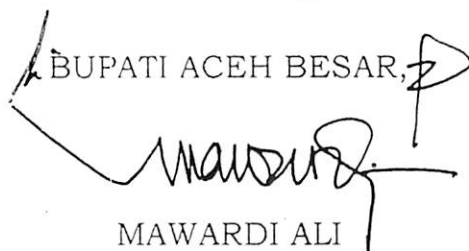 BUPATI ACEH BESAR,
MAWARDI ALI